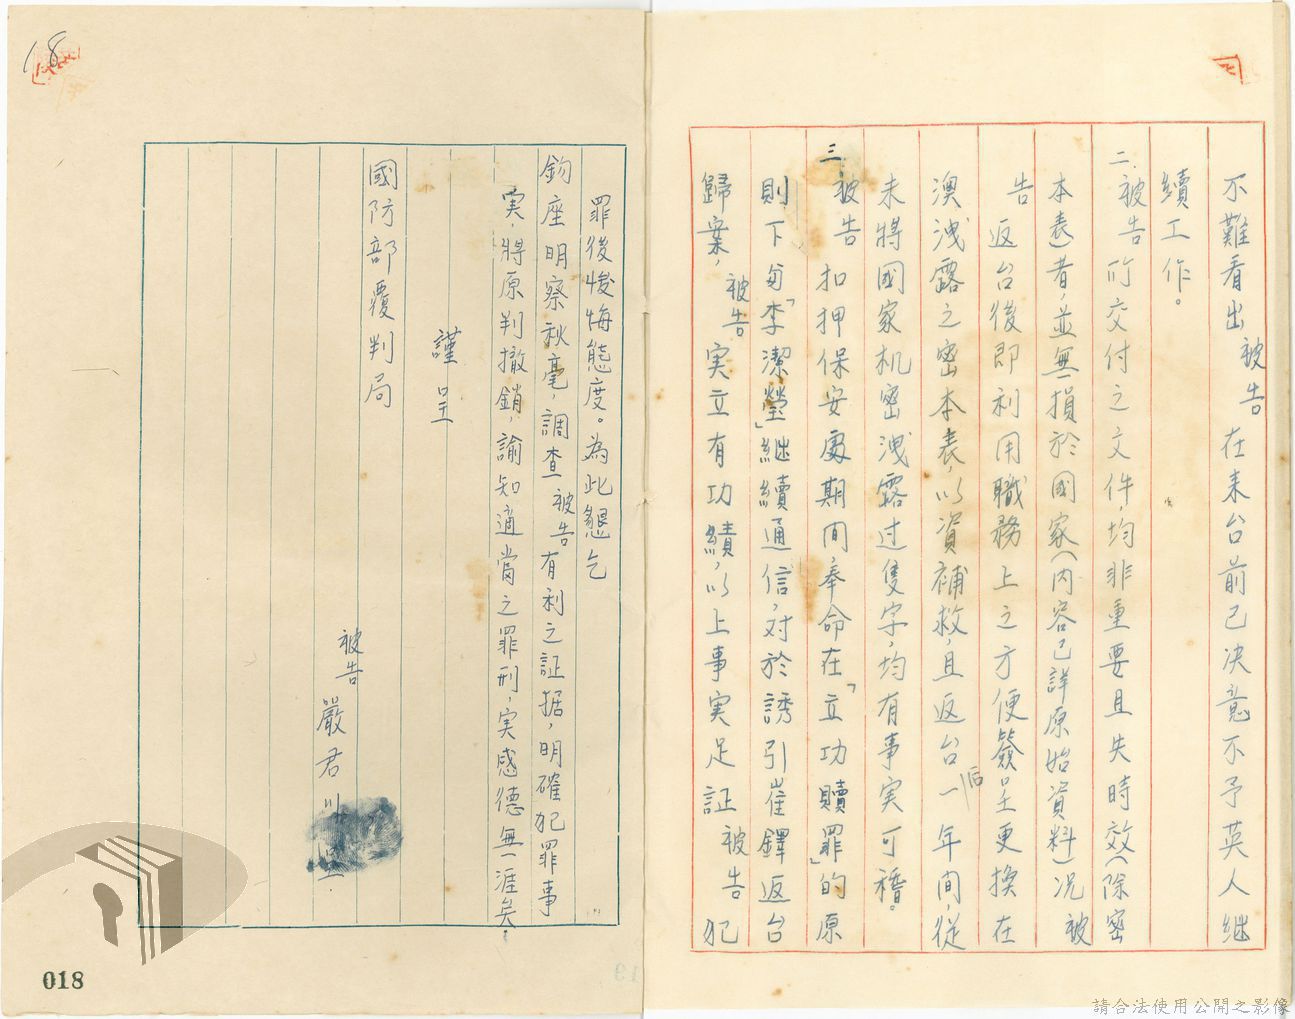 不難看出被告在來台前已決意不予英人継
續工作。
二、被告所交付之文件，均非重要且失時效（除密
本表）者，並無損於國家（內容已詳原始資料）況被
告返台後即利用職務上之方便簽呈更換在
澳洩露之密本表，以資補救，且返台后一年間，從
未將國家机密洩露过隻字，均有事実可稽。
三、被告扣押保安處期间，奉命在「立功贖罪」的原
則下与「李潔瑩」継續通信，对於誘引崔鐸返台
歸案，被告実立有功績，以上事実足証被告犯
罪後悛悔態度。為此懇乞
鈞座明察秋毫，調查被告有利之証据，明確犯罪事
実，將原判撤銷，諭知適當之罪刑，実感德無涯矣。
謹呈
國防部覆判局
被告 嚴君
18
018
請合法使用公開之影像